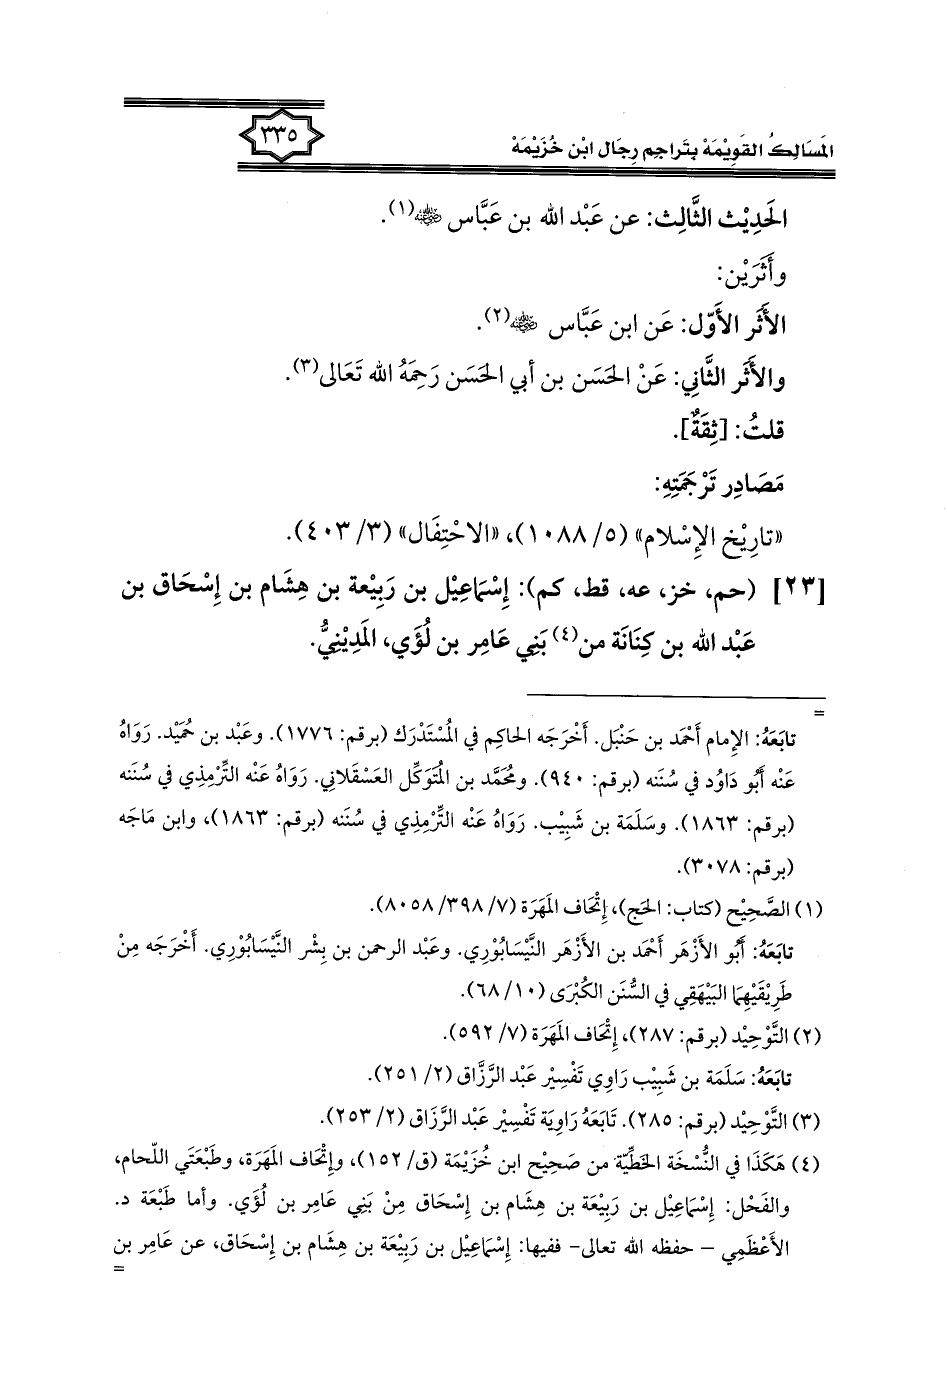 المَسَالِكُ القَوِيْمَة بِتَراجِم رِجَال ابْن خُزَيْمَة
٣٣٥
الحَدِيْث الثَّالِث: عن عَبْد الله بن عَبَّاس ﵁(١).
وأَثَرَيْن:
الأَثَر الأَوَّل: عَن ابن عَبَّاس ﵁(٢).
والأَثَر الثَّانِي: عَنْ الحَسَن بن أبي الحَسَن رَحِمَهُ الله تَعَالى(٣).
قلتُ: [ثِقَةٌ].
مَصَادِر تَرْجَمَتِهِ:
«تارِيْخ الإِسْلام» (٥/ ١٠٨٨)، «الاحْتِفَال» (٣/ ٤٠٣).
[٢٣] (حم، خز، عه، قط، كم): إِسْمَاعِيْل بن رَبِيْعة بن هِشَام بن إِسْحَاق بن
عَبْد الله بن كِنَانَة من(٤) بَنِي عَامِر بن لُؤَي، المَدِيْنِيُّ.
=
تابَعَهُ: الإِمام أَحْمَد بن حَنْبَل. أَخْرَجَه الحاكِم في المُسْتَدْرَك (برقم: ١٧٧٦). وعَبْد بن حُمَيْد. رَوَاهُ
عَنْه أَبُو دَاوُد في سُنَنه (برقم: ٩٤٠). ومُحَمَّد بن المُتَوَكِّل العَسْقَلاني. رَوَاهُ عَنْه التِّرْمِذي في سُنَنه
(برقم: ١٨٦٣). وسَلَمَة بن شَبِيْب. رَوَاهُ عَنْه التِّرْمِذي في سُنَنه (برقم: ١٨٦٣)، وابن مَاجَه
(برقم: ٣٠٧٨).
(١) الصَّحِيْح (كتاب: الحَج)، إِتْحَاف المَهَرَة (٧/ ٣٩٨/ ٨٠٥٨).
تابَعَهُ: أَبُو الأَزْهَر أَحْمَد بن الأَزْهَر النَّيْسَابُوْري. وعَبْد الرحمن بن بِشْر النَّيْسَابُوْري. أَخْرَجَه مِنْ
طَرِيْقَيْهِمَا البَيْهَقِي في السُّنَن الكُبْرَى (١٠/ ٦٨).
(٢) التَّوْحِيْد (برقم: ٢٨٧)، إِتْحَاف المَهَرَة (٧/ ٥٩٢).
تابَعَهُ: سَلَمَة بن شَبِيْب رَاوِي تَفْسِيْر عَبْد الرَّزَّاق (٢/ ٢٥١).
(٣) التَّوْحِيْد (برقم: ٢٨٥). تَابَعَهُ رَاوِيَة تَفْسِيْر عَبْد الرَّزَاق (٢/ ٢٥٣).
(٤) هَكَذَا في النُّسْخَة الخَطِّيَّة من صَحِيْح ابن خُزَيْمَة (ق/ ١٥٢)، وإِتْحَاف المَهَرَة، وطَبْعَتَي اللّحام،
والفَحْل: إِسْمَاعِيْل بن رَبِيْعَة بن هِشَام بن إِسْحَاق مِنْ بَنِي عَامِر بن لُؤَي. وأما طَبْعَة د.
الأَعْظَمِي – حفظه الله تعالى– ففيها: إِسْمَاعِيْل بن رَبِيْعَة بن هِشَام بن إِسْحَاق، عن عَامِر بن
=